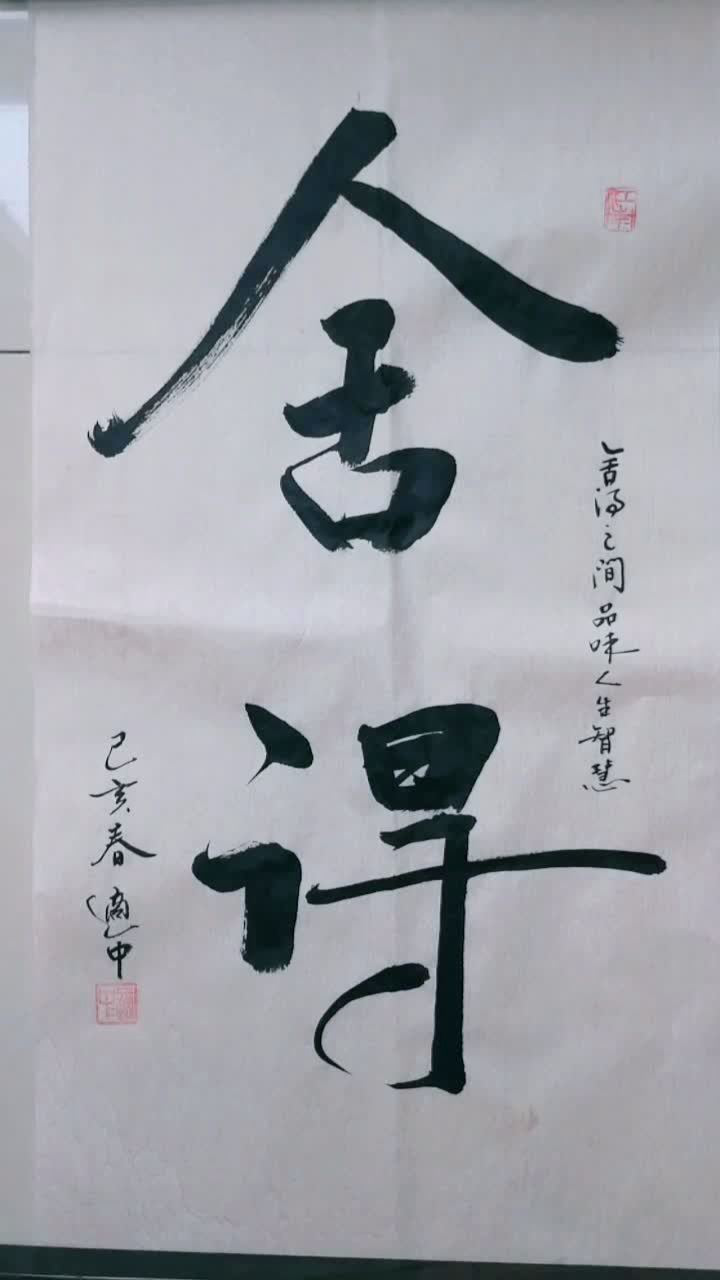 舍得
舍得之间品味人生智慧
己亥春适中